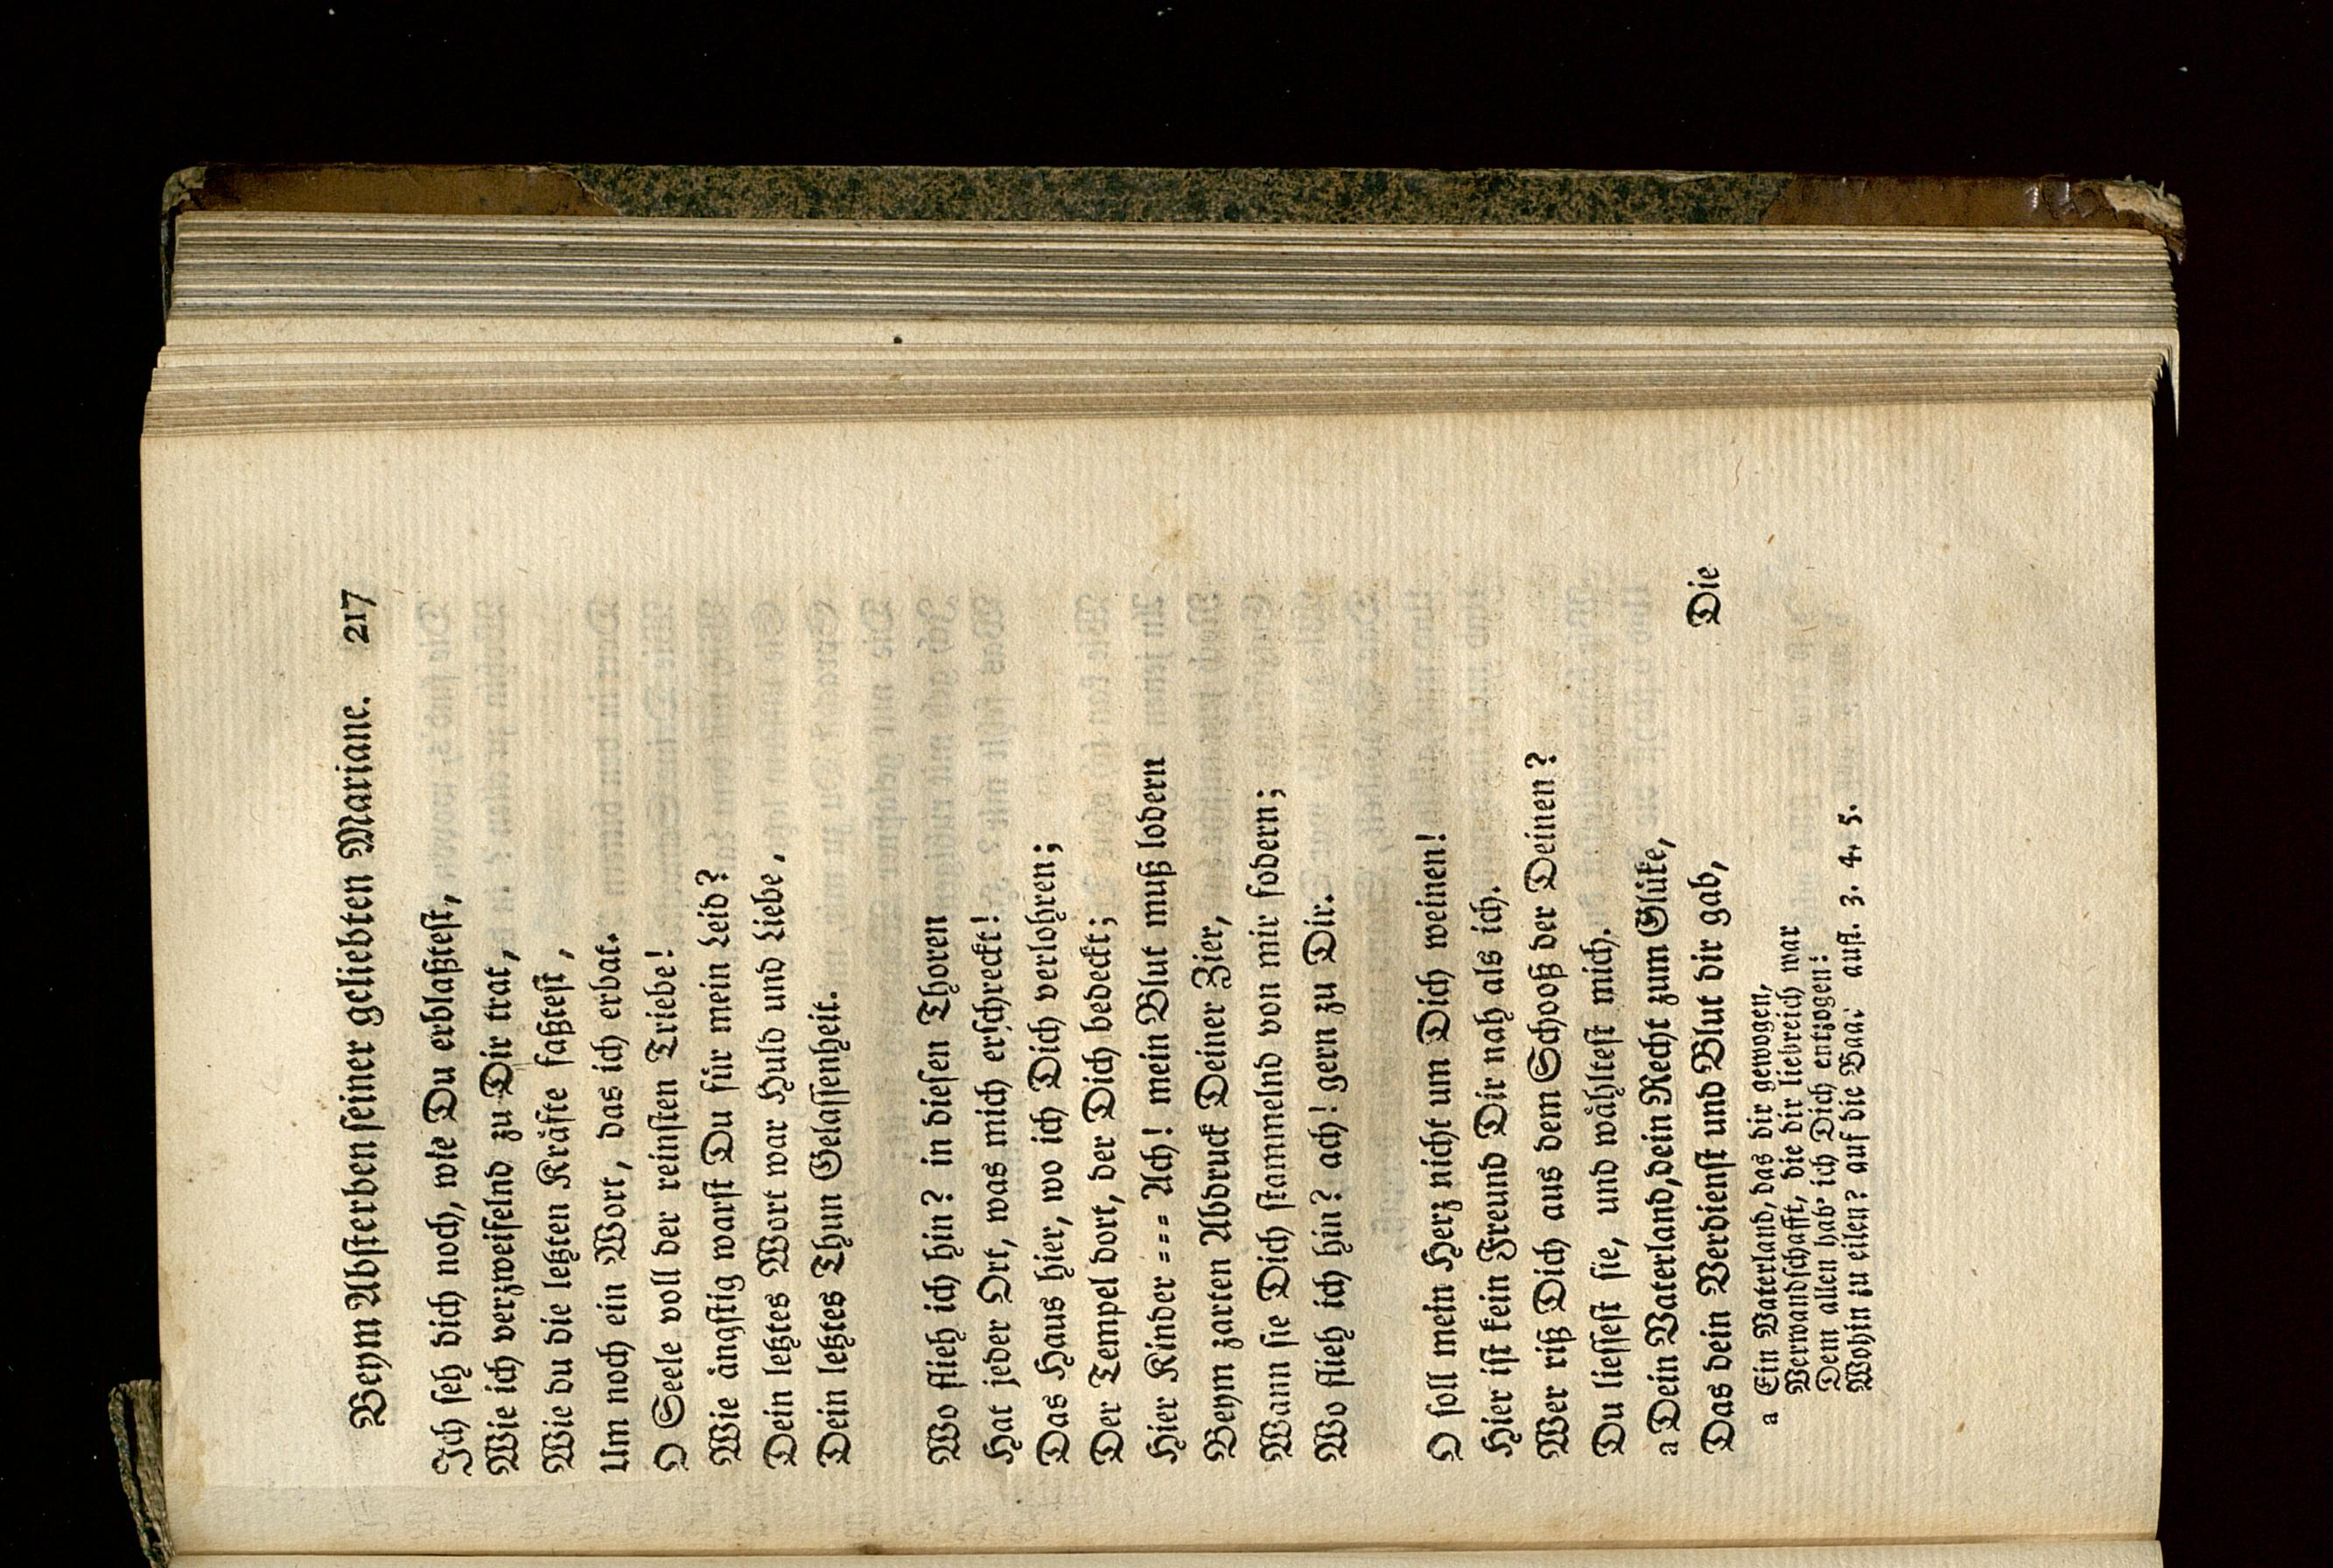 Beym Absterben seiner geliebten Mariane. 217
Ich seh dich noch, wie Du erblaßtest,
Wie ich verzweifelnd zu Dir trat,
Wie du die letzten Kräfte faßtest,
Um noch ein Wort, das ich erbat.
O Seele voll der reinsten Triebe!
Wie ängstig warst Du für mein Leid?
Dein letztes Wort war Huld und Liebe,
Dein letztes Thun Gelassenheit.
Wo flieh ich hin? in diesen Thoren
Hat jeder Ort, was mich erschreckt!
Das Haus hier, wo ich Dich verlohren;
Der Tempel dort, der Dich bedeckt;
Hier Kinder = = = Ach! mein Blut muß lodern
Beym zarten Abdruck Deiner Zier,
Wann sie Dich stammelnd von mir fodern;
Wo flieh ich hin? ach! gern zu Dir.
O soll mein Herz nicht um Dich weinen!
Hier ist kein Freund Dir nah als ich.
Wer riß Dich aus dem Schooß der Deinen?
Du liessest sie, und wähltest mich.
a Dein Vaterland, dein Recht zum Glüke,
Das dein Verdienst und Blut dir gab,
Die
a Ein Vaterland, das dir gewogen,
Verwandschafft, die dir liebreich war
Dem allen hab' ich Dich entzogen:
Wohin zu eilen? auf die Baar aufl. 3. 4. 5.